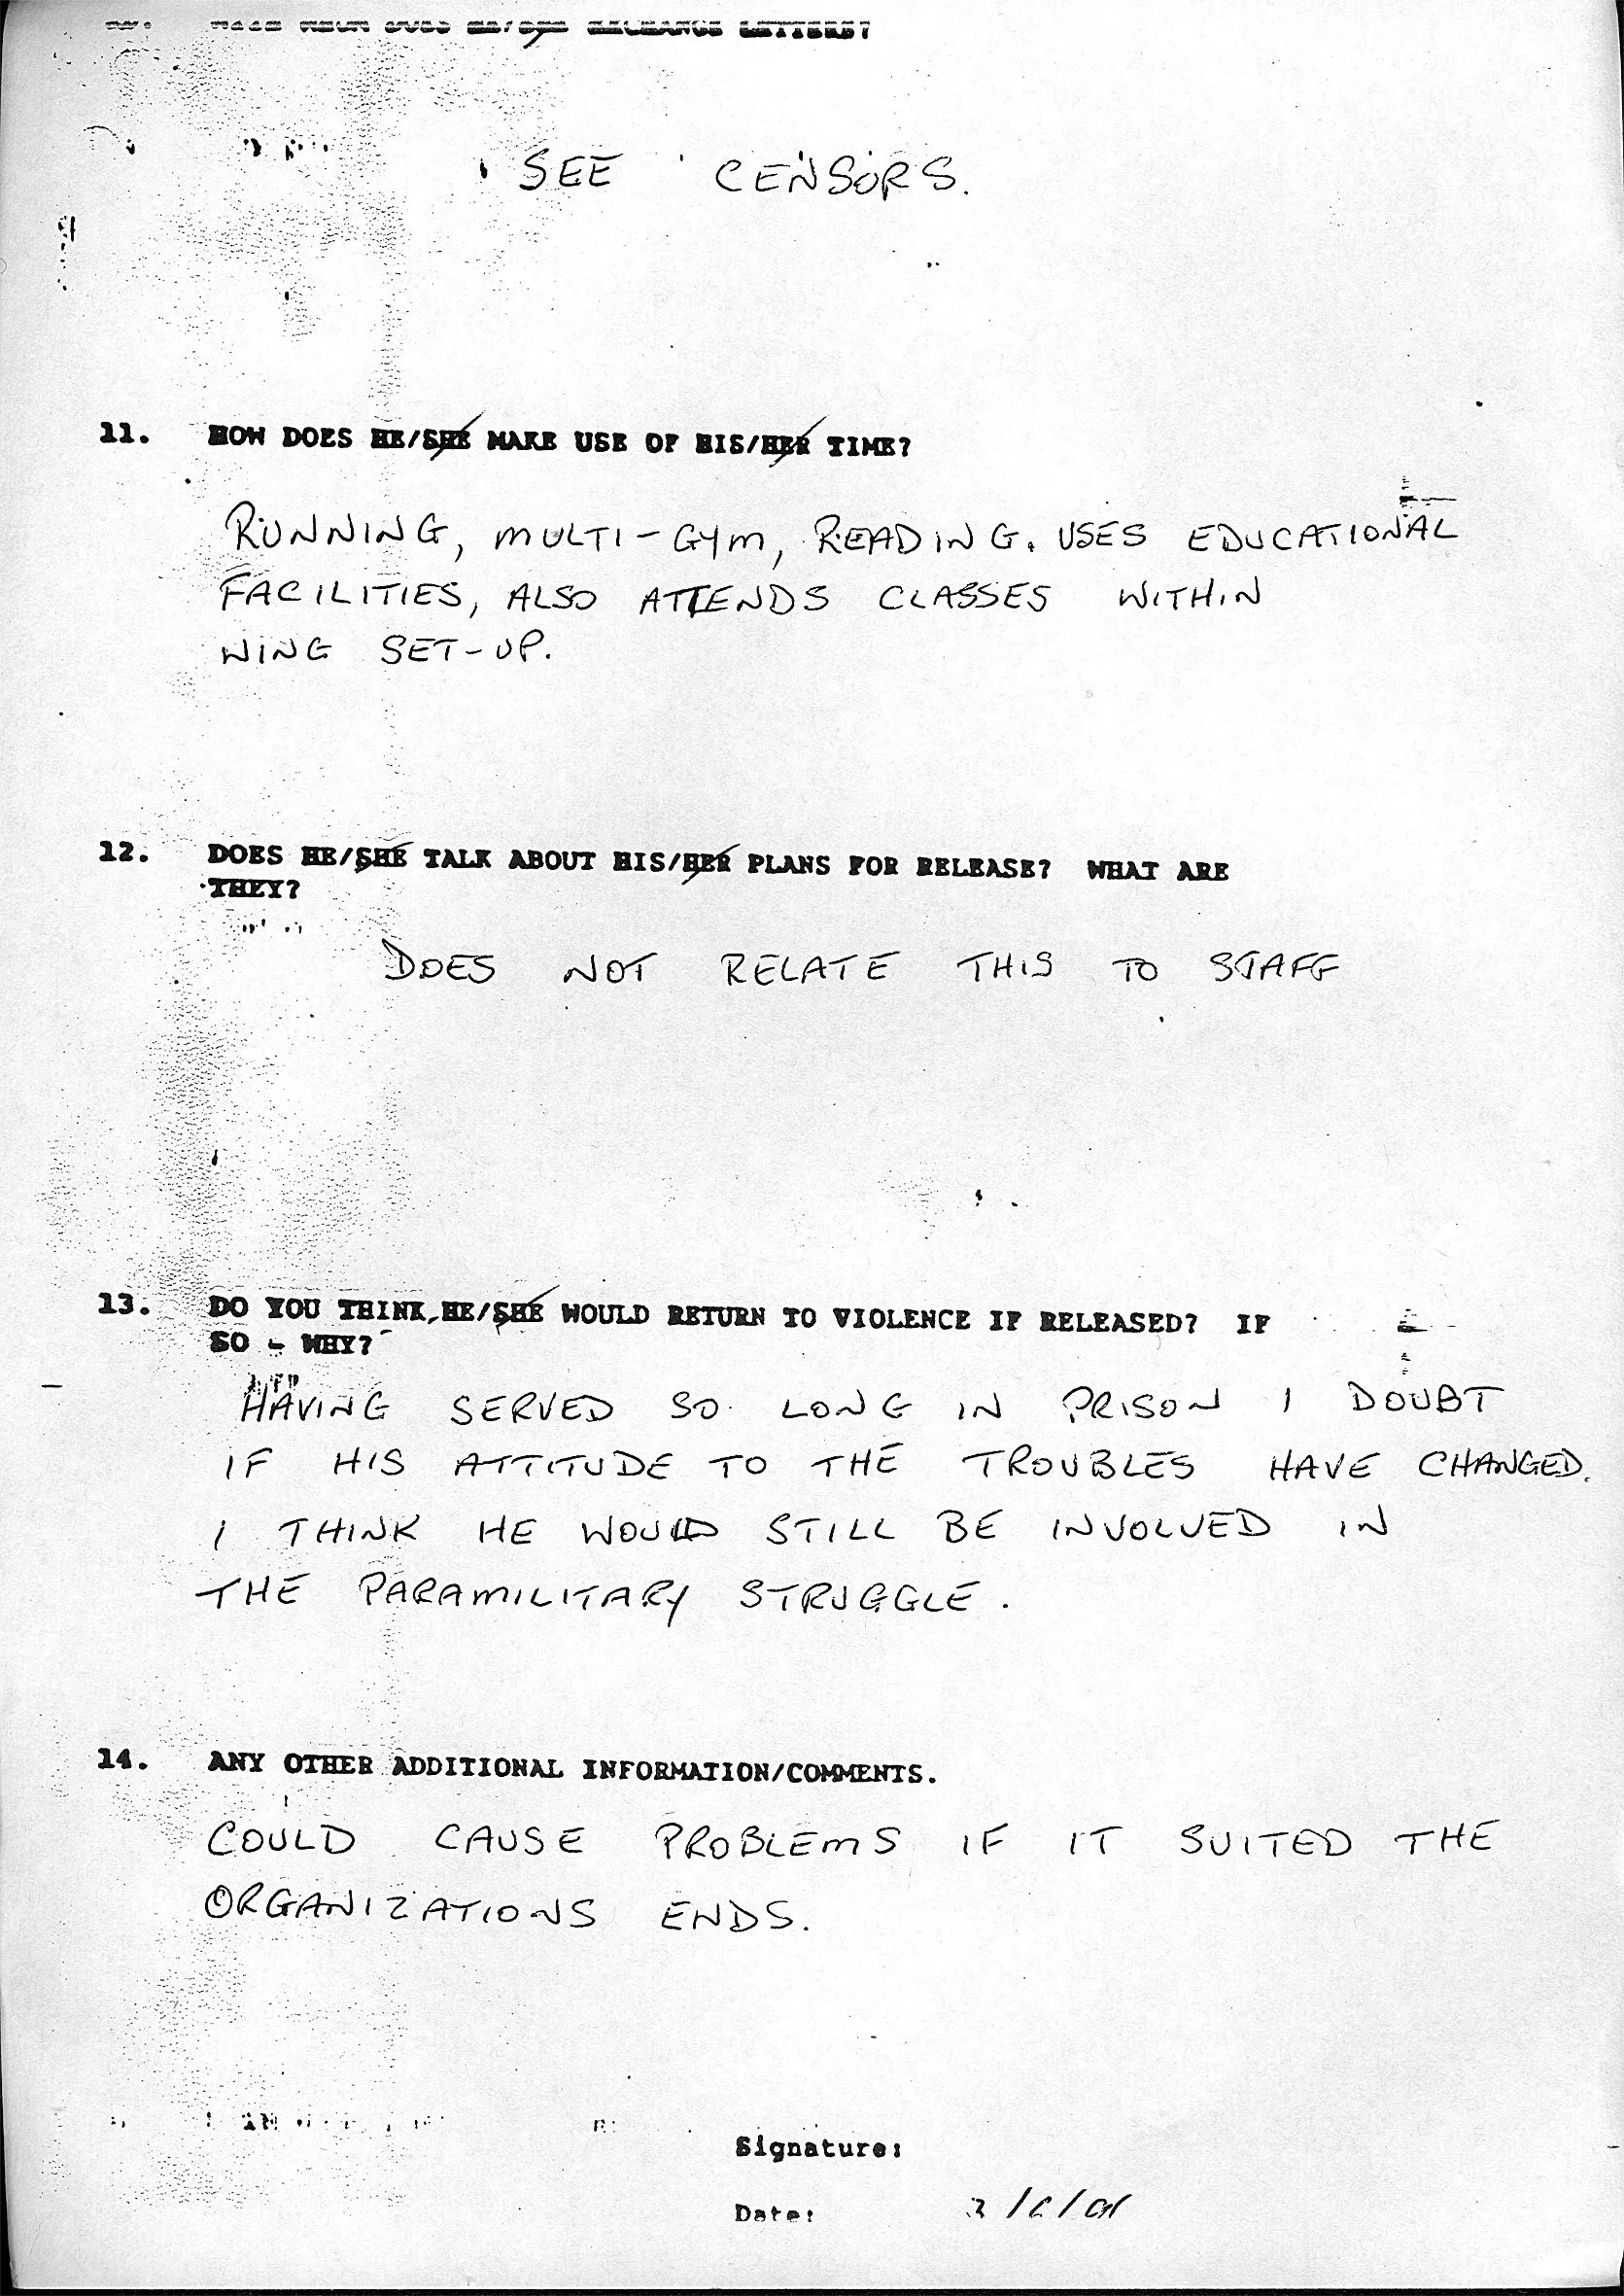 EXCHANGE LETTERS?
SEE CENSORS.
11. HOW DOES HE/SHE MAKE USE OF HIS/HER TIME?
RUNNING, MULTI-GYM, READING. USES EDUCATIONAL
FACILITIES, ALSO ATTENDS CLASSES WITHIN
WING SET-UP.
12. DOES HE/SHE TALK ABOUT HIS/HER PLANS FOR RELEASE? WHAT ARE
THEY?
DOES NOT RELATE THIS TO STAFF
13. DO YOU THINK HE/SHE WOULD RETURN TO VIOLENCE IF RELEASED? IF
SO - WHY?
HAVING SERVED SO LONG IN PRISON I DOUBT
IF HIS ATTITUDE TO THE TROUBLES HAVE CHANGED.
I THINK HE WOULD STILL BE INVOLVED IN
THE PARAMILITARY STRUGGLE.
14. ANY OTHER ADDITIONAL INFORMATION/COMMENTS.
COULD CAUSE PROBLEMS IF IT SUITED THE
ORGANIZATIONS ENDS.
Signature:
Date: